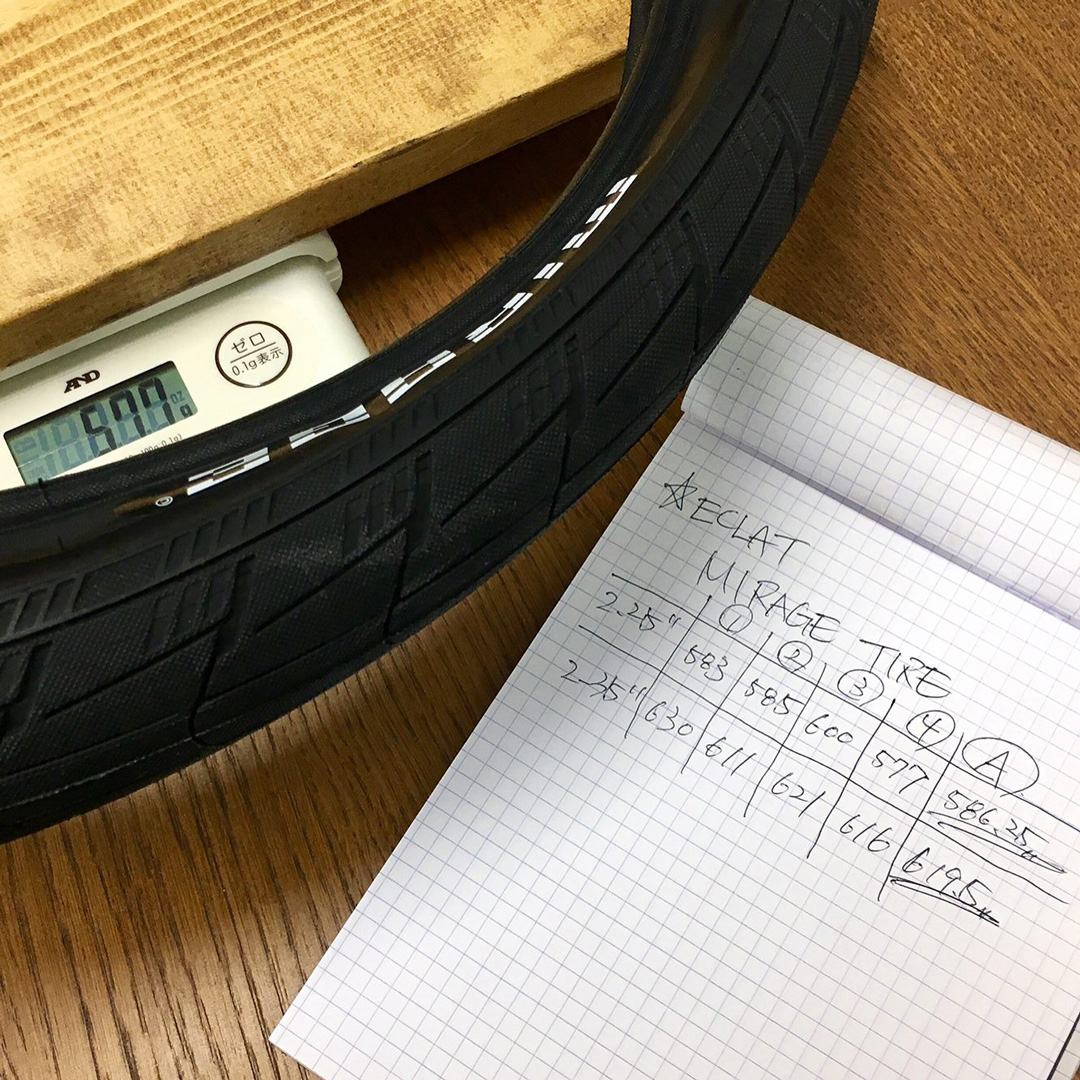 AND
577 g
oz
ゼロ
0.1g表示
☆ECLAT
MIRAGE TIRE
① ② ③ ④ Ⓐ
2.25" 583 585 600 577 586.25
2.35" 630 611 621 616 619.5